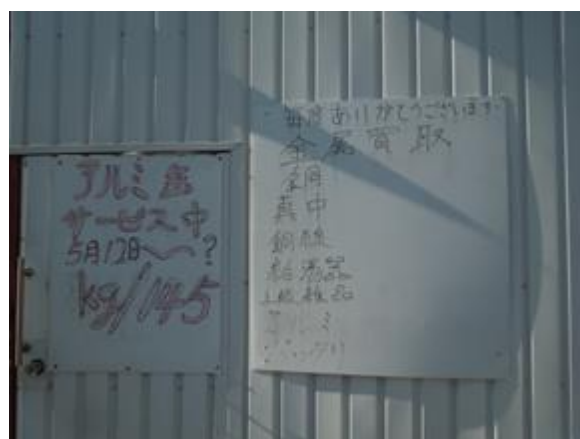 アルミ缶
サービス中
5月12日〜〜?
kg/145
毎度ありがとうございます
金属買取
銅
真中
銅線
給湯器
アルミ